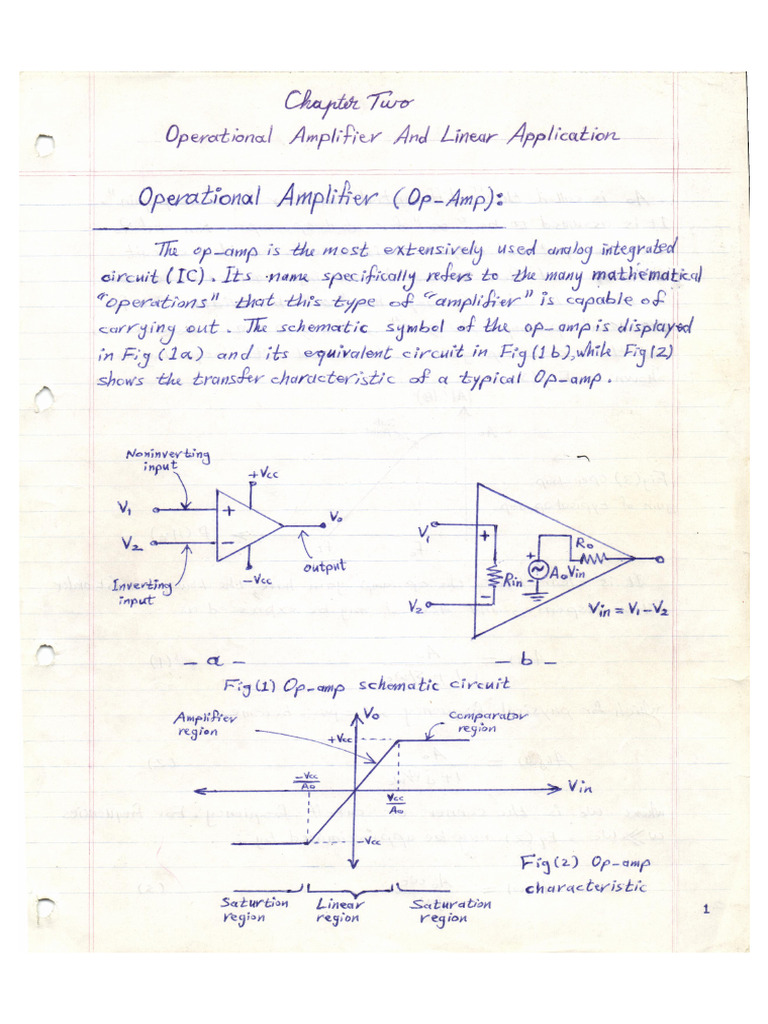 Chapter Two
Operational Amplifier And Linear Application
Operational Amplifier (Op-Amp):
The op-amp is the most extensively used analog integrated
circuit (IC). Its name specifically refers to the many mathematical
"operations" that this type of "amplifier" is capable of
carrying out. The schematic symbol of the op-amp is displayed
in Fig (1a) and its equivalent circuit in Fig (1b), while Fig (2)
shows the transfer characteristic of a typical Op-amp.
Noninverting
input
+Vcc
V1
+
Vo
V2
-
output
-Vcc
Inverting
input
V1
+
Rin
-
V2
+
-
AoVin
Ro
Vin = V1-V2
- a -
- b -
Fig (1) Op-amp schematic circuit
Amplifier
region
Vo
Comparator
region
+Vcc
-Vcc
Ao
Vin
Vcc
Ao
-Vcc
Fig (2) Op-amp
characteristic
Saturtion
region
Linear
region
Saturation
region
1